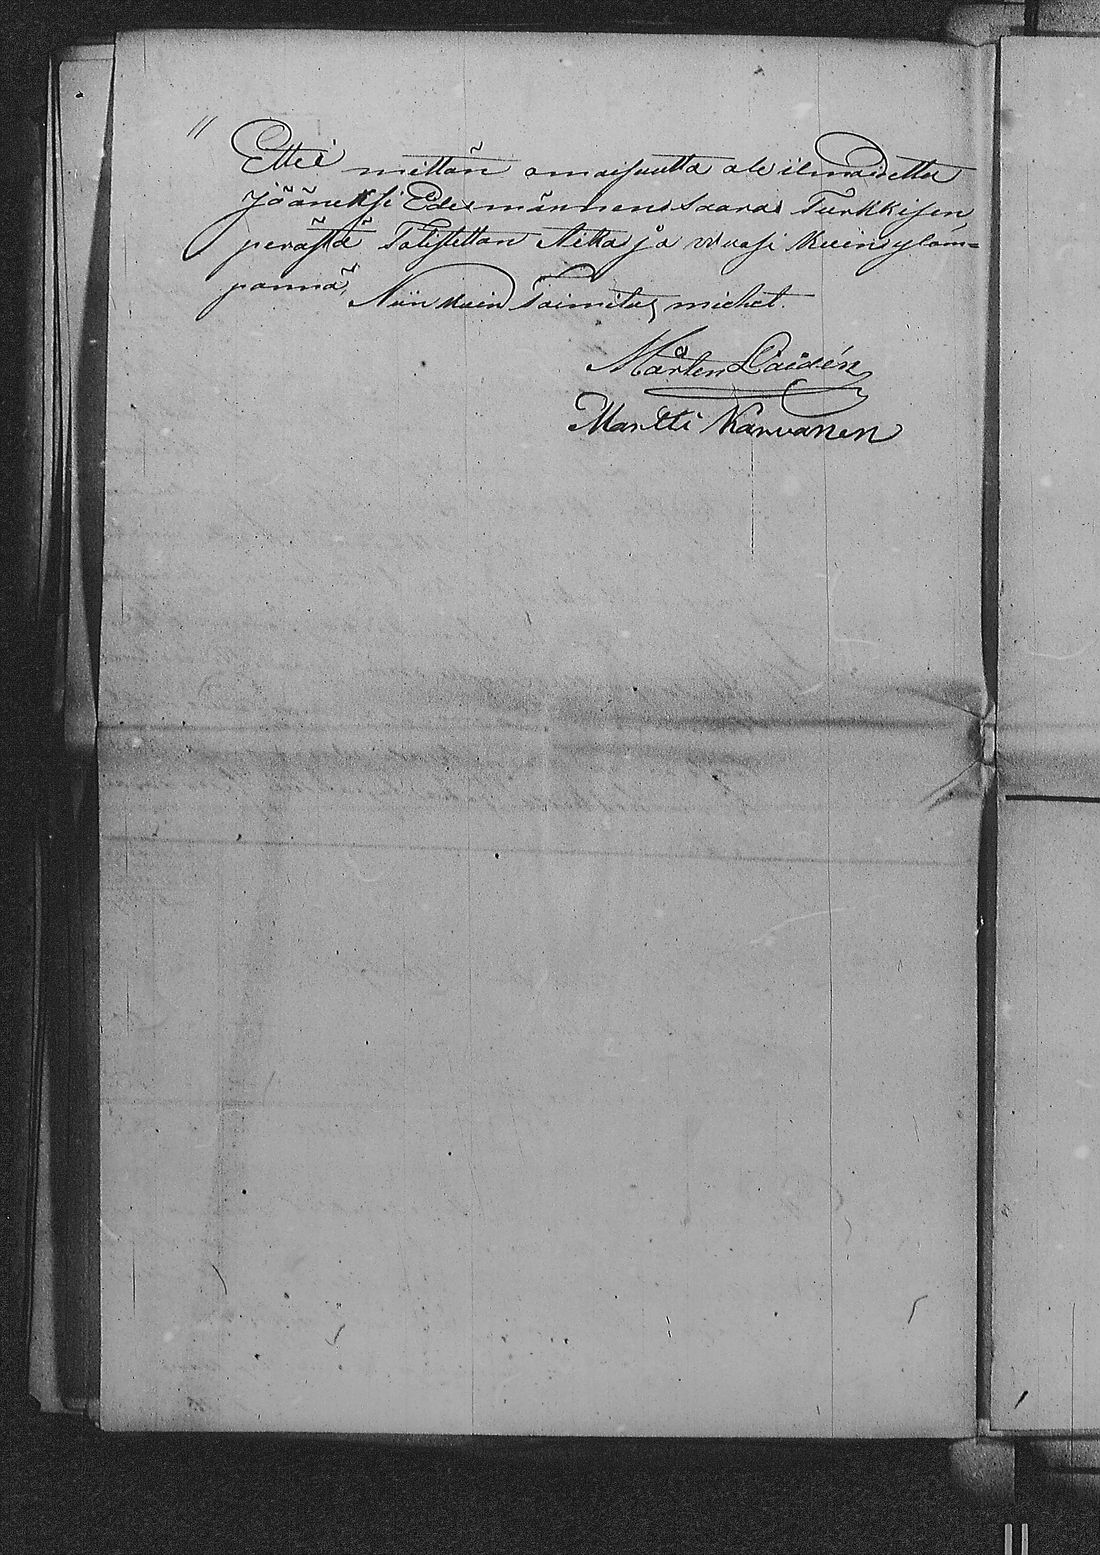 "
Ettei mittän omaisuutta ole ilmoidettu
jääneksi Edesmännen Saara Turkkisen
perästä Totistettan Aika ja vuosi kuin yläm-
pännä, Niin kuin Toimitus miehet.
Mårten Laidén
Martti Karvanen